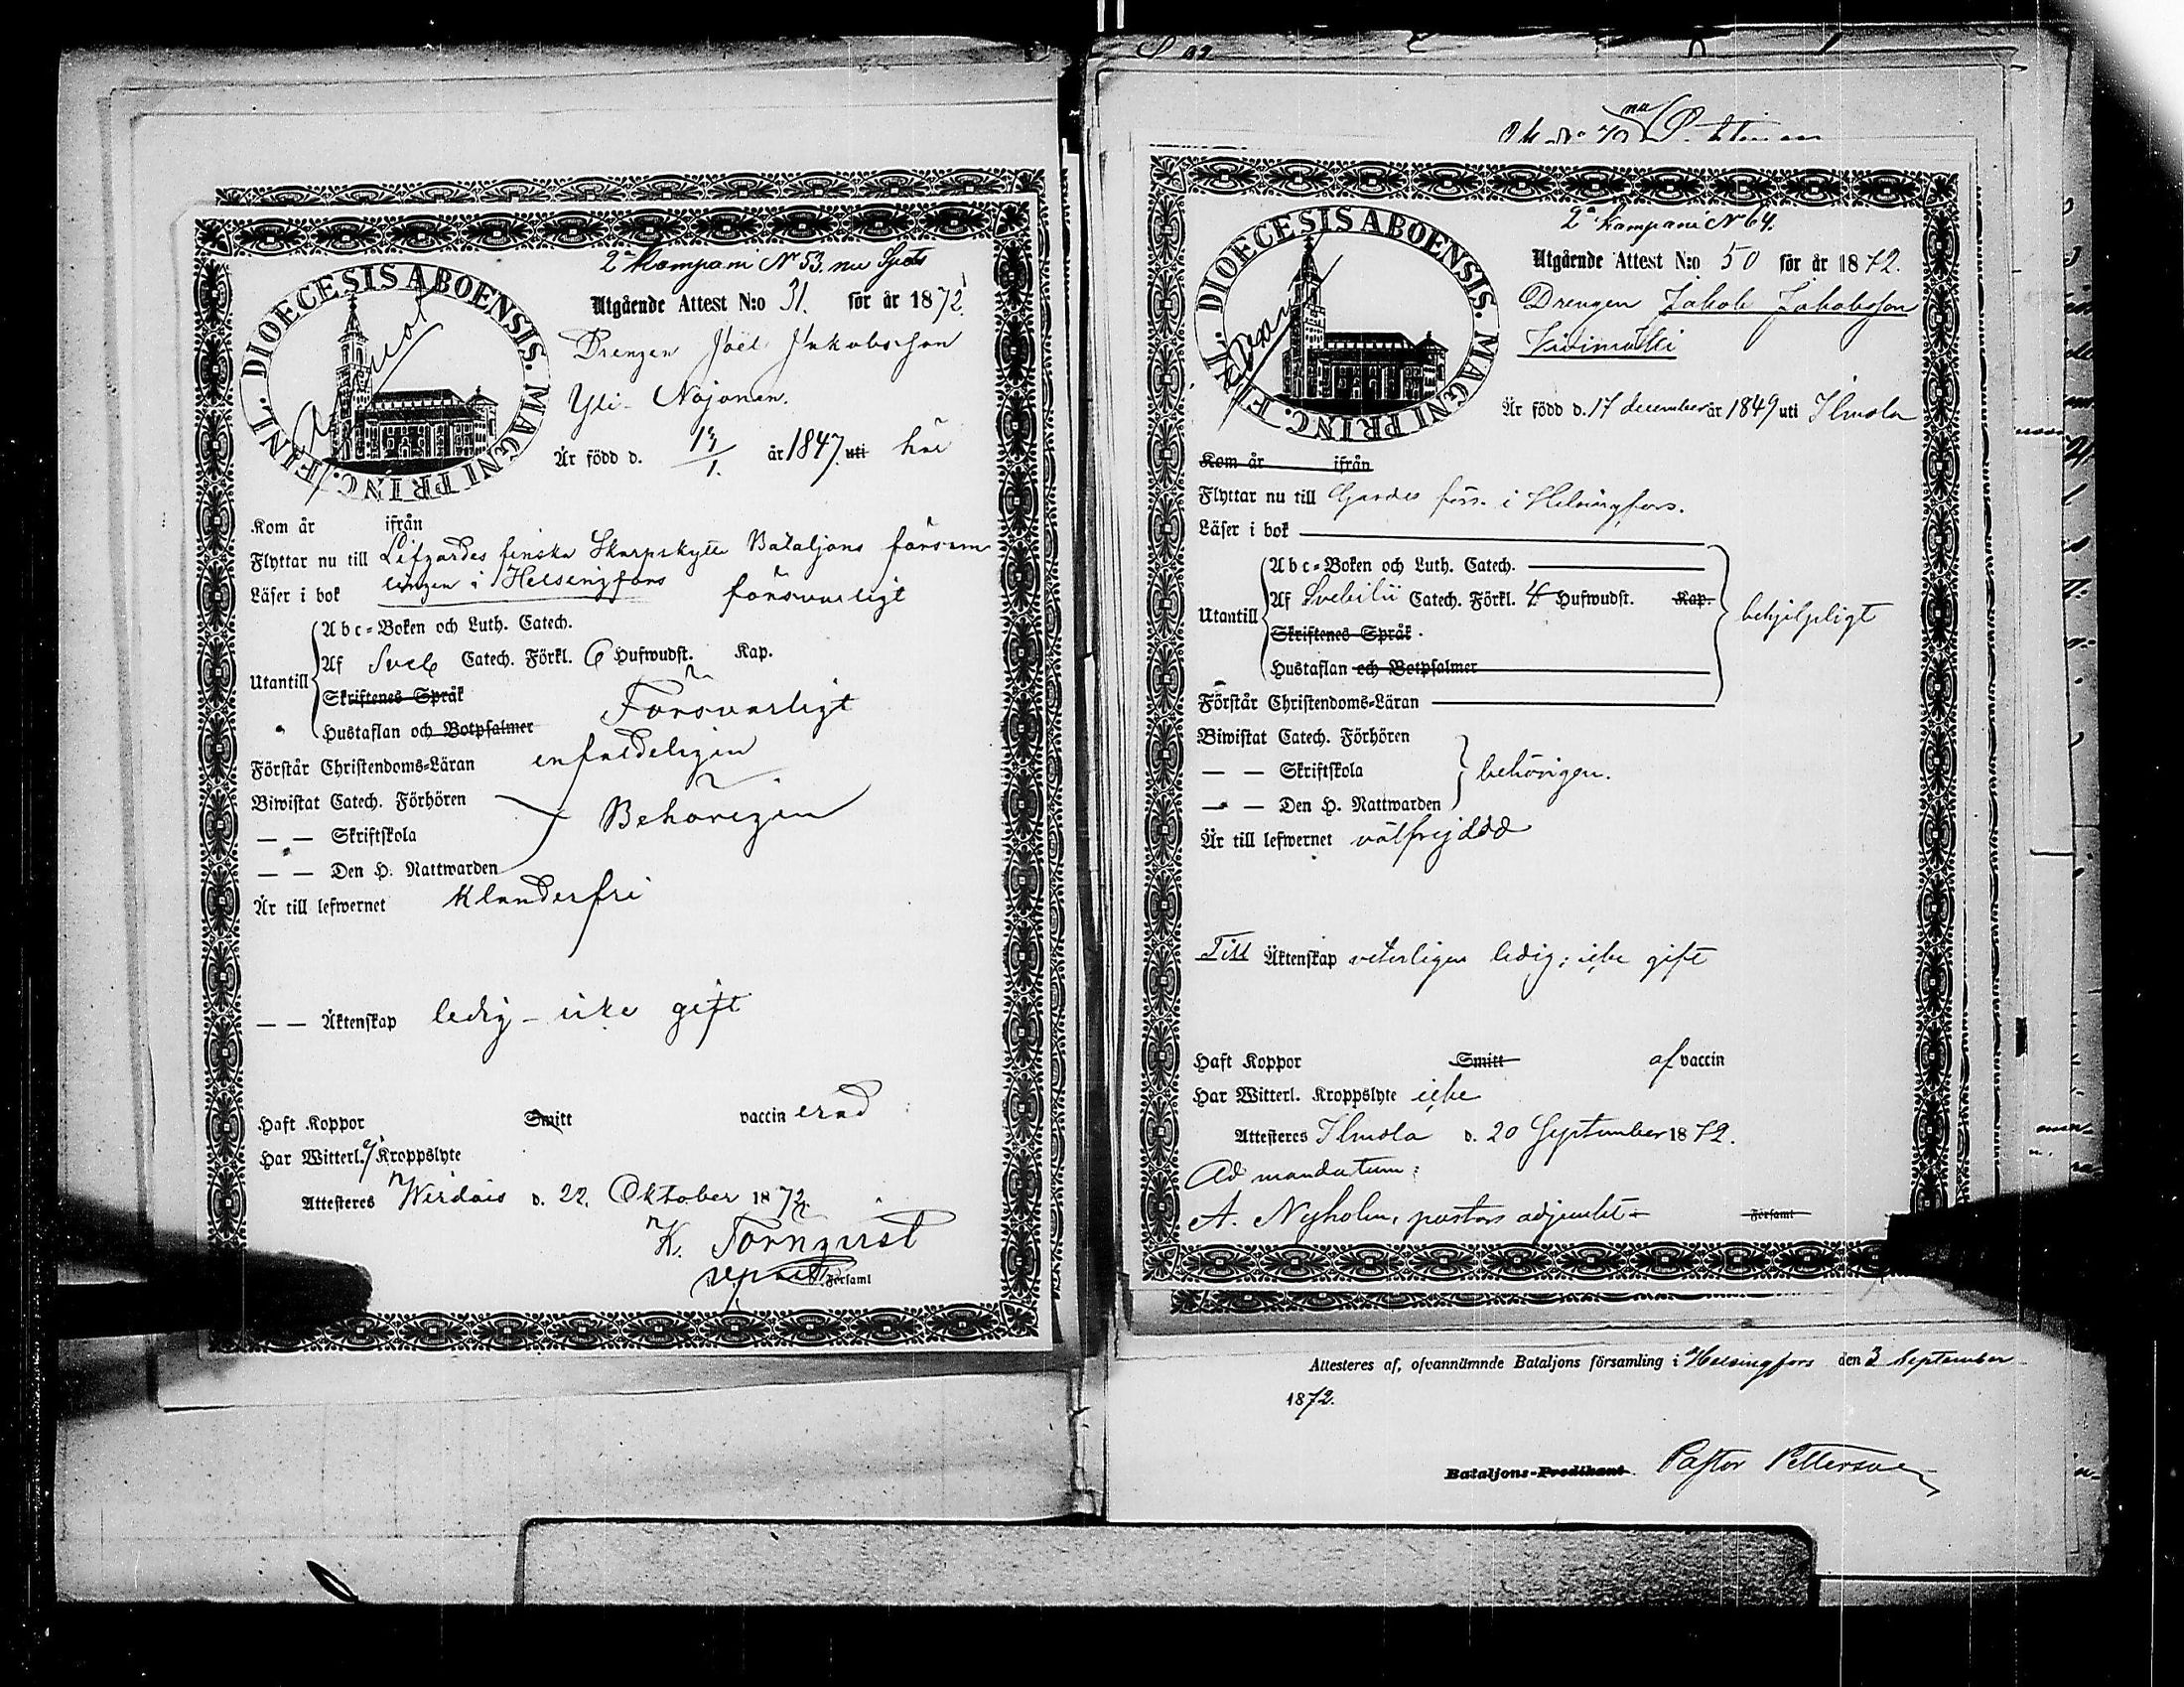 2a Kompani No 53. nu Spets
DIOECESIS ABOENSIS. MAGNI PRINC. FINL.
Utgående Attest N:o 31. för år 1872.
Drengen Joel Jakobsson
Yli-Nojonen.
Är född d. 1. år 1847. uti här
Kom år ifrån
Flyttar nu till Lifgardes finska Skarpskytte Bataljons försam
lingen i Helsingfors
Läser i bok försvarligt
Abc-Boken och Luth. Catech.
Utantill Af Sveb Catech. Förkl. 6 Hufwudst. Kap.
Skriftenes Språk
Hustaflan och Botpsalmer Försvarligt
Förstår Christendoms-Läran enfaldeligen
Biwistat Catech. Förhören
— — Skriftskola Behörigen
— — Den H. Nattwarden
Är till lefwernet Klanderfri
— — Äktenskap ledig - icke gift
Haft Koppor Smitt vaccin erad
Har Witterl. ej Kroppslyte
Attesteres Wirdois d. 22. Oktober 1872.
K. Törnqvist
Församl
2a Kompani No 64.
DIOECESIS ABOENSIS. MAGNI PRINC. FINL.
Utgående Attest N:o 50 för år 1872.
Drengen Jakob Jakobsson
Är född d. 17 december år 1849 uti Ilmola
Kom år ifrån
Flyttar nu till Gardes förs. i Helsingfors.
Läser i bok
Abc-Boken och Luth. Catech.
Utantill Af Svebilii Catech. Förkl. Hufwudst. Kap.
Skriftenes Språk behjelpligt
Hustaflan och Botpsalmer
Förstår Christendoms-Läran
Biwistat Catech. Förhören
— — Skriftskola behörigen.
— — Den H. Nattwarden
Är till lefwernet välfrejdad
Till Äktenskap veterligen ledig; icke gift
Haft Koppor Smitt af vaccin
Har Witterl. Kroppslyte icke
Attesteres Ilmola d. 20 September 1872.
Ad mandatum:
A. Nyholm, pastors adjunkt
Församl
Attesteres af, ofvannämnde Bataljons församling i Helsingfors den 3 September
1872.
Bataljons-Predikant. Pastor Pettersson